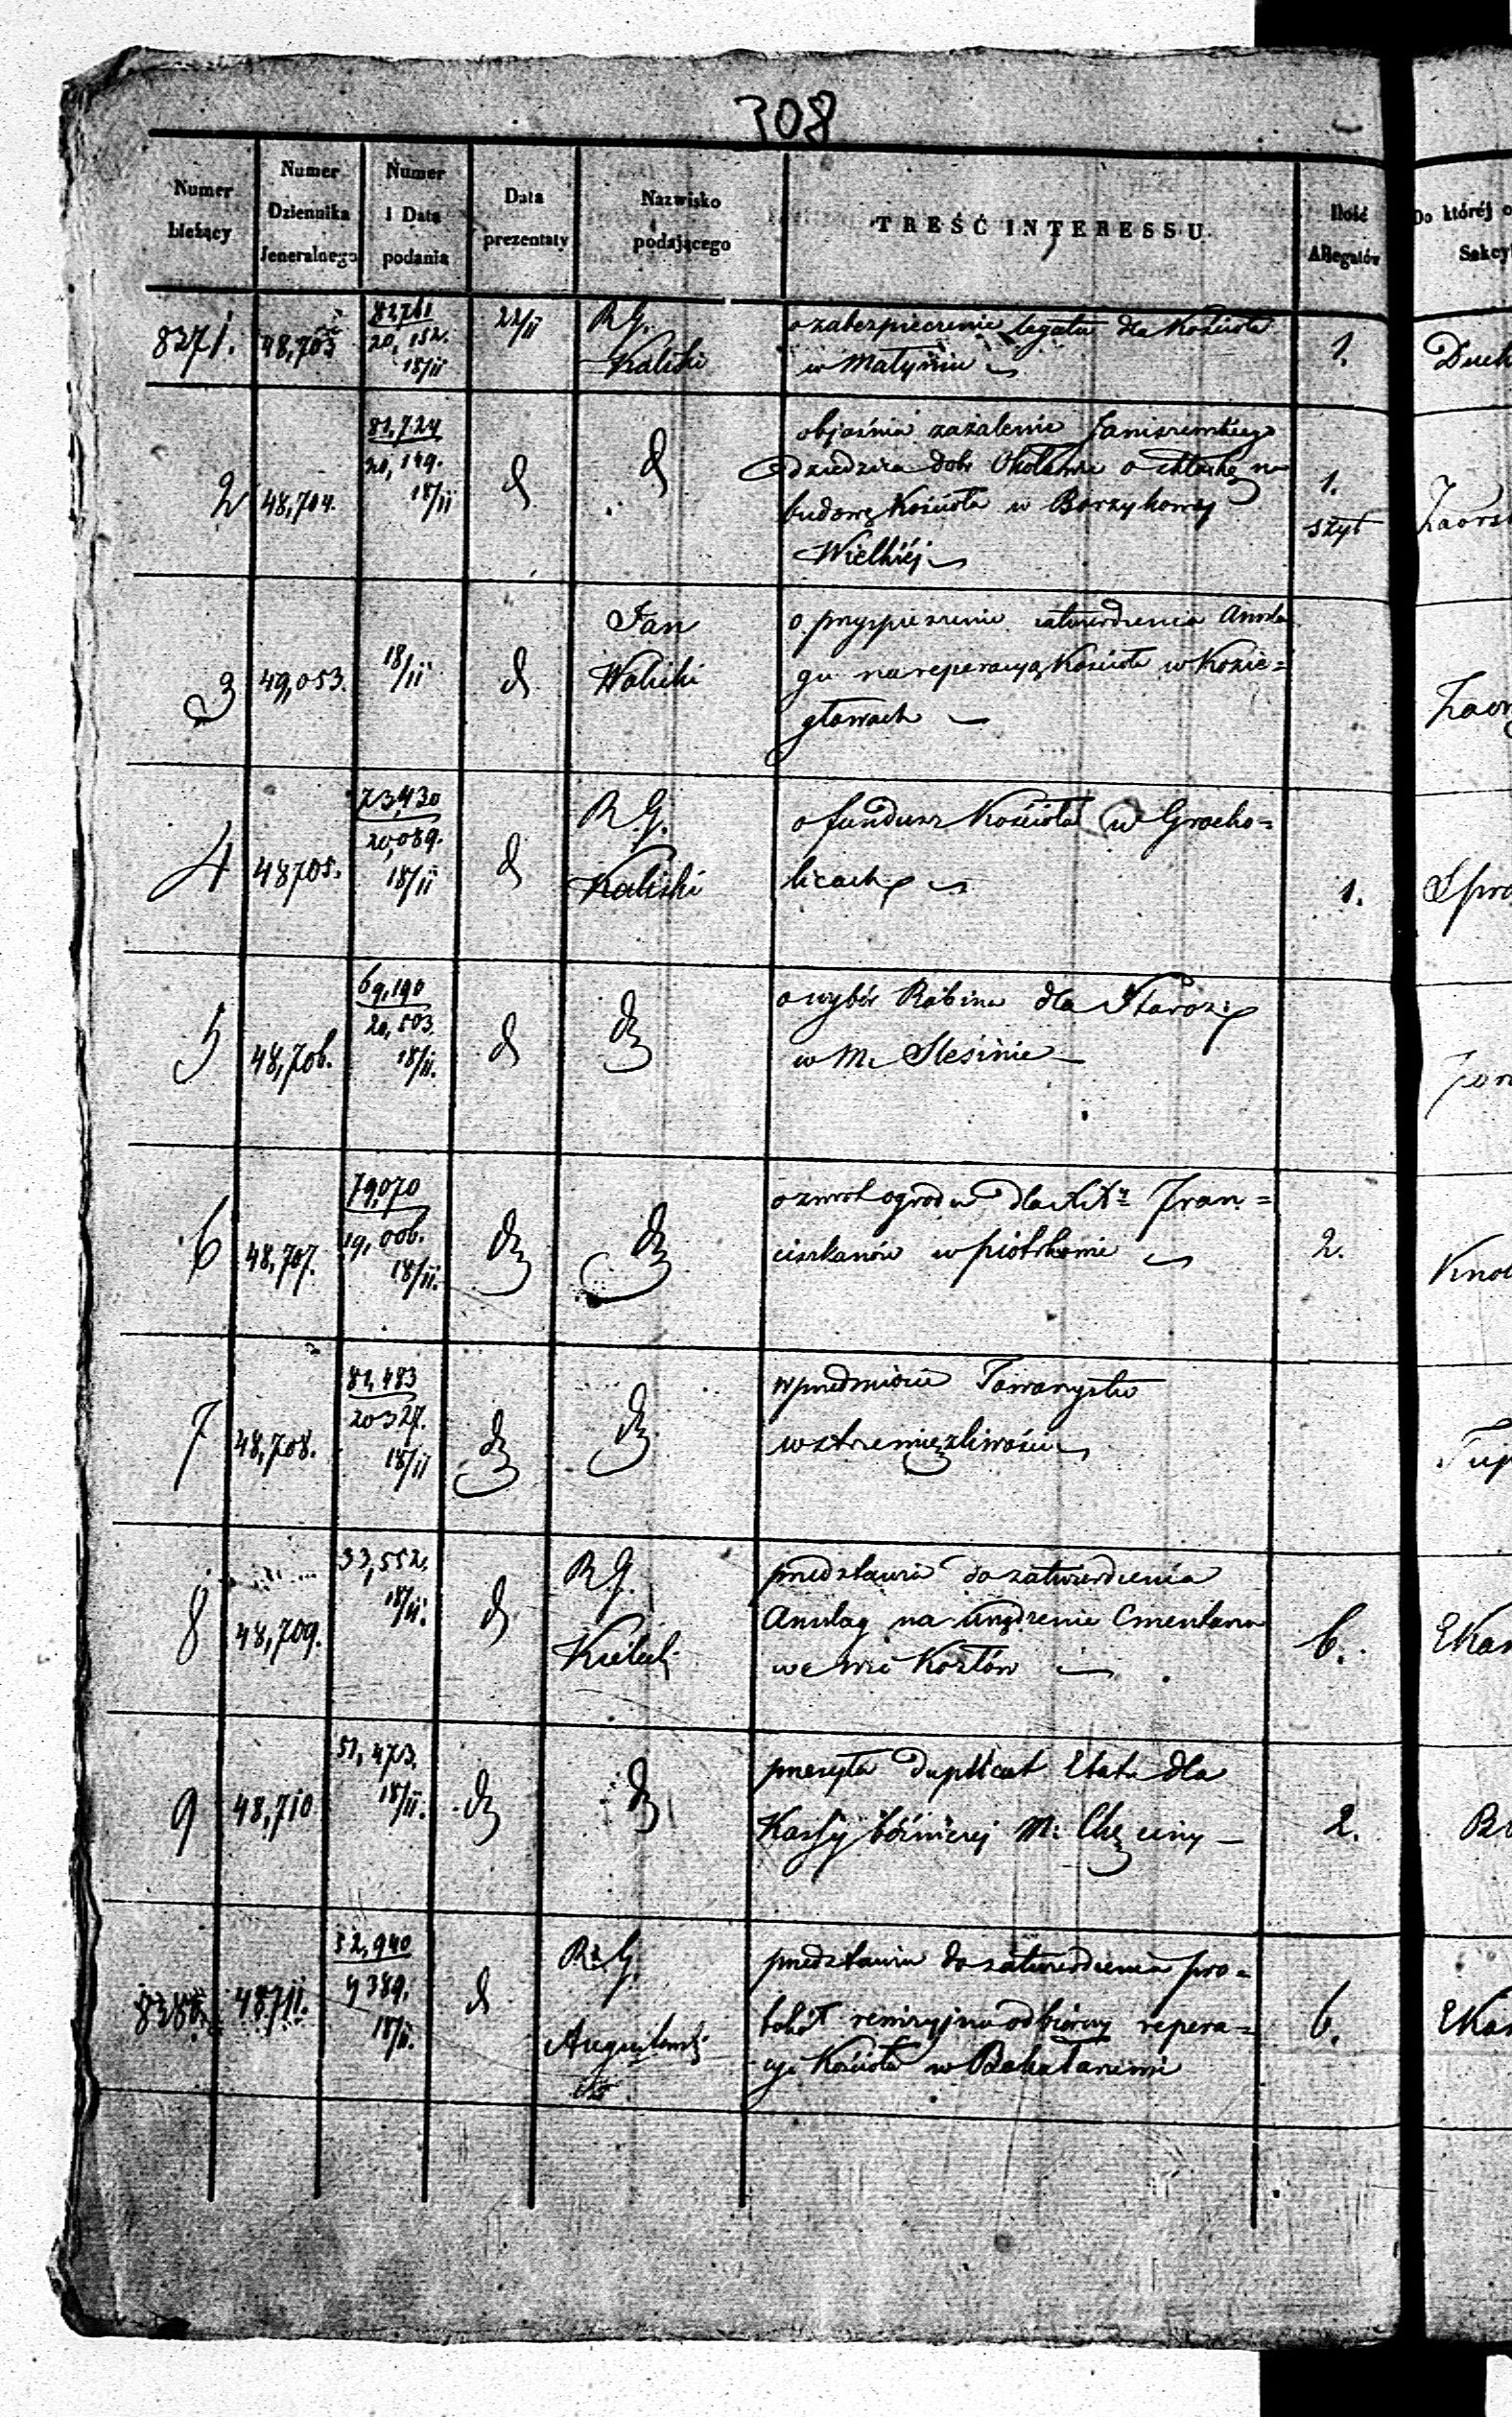 308
Numer
bieżący
Numer
Dziennika
Jeneralnego
Numer
i Data
podania
Data
prezentaty
Nazwisko
podającego
TREŚĆ INTERESSU.
Ilość
Allegatów
Do której
Sekcy
8271.
48,703
20,152.
18/II
22/II
R. G.
Kaliski
o zabezpieczenie legatu dla Kościoła
w Małyniu
1.
Duch
2
48,704.
81,724
20,149.
18/II
d
d
objaśnia zażalenie
dziedzica dobr o składkę na
budowę Kościoła w Borzykowy
Wielkiéj
1.
szyt
3
49,053.
18/II
d
Jan
Walicki
o przyspieszenie zatwierdzenia Anszla
gu na reperacyą Kościoła w Kozie=
głowach
4
48705.
73,430
20,089.
18/II
d
R. G.
Kaliski
o fundusz Kościoła w Grocho=
licach
1.
5
48,706.
69,190
20,503.
18/II.
d
dz
o wybór Rabina dla Staroz:
w M. Slesinie
6
48,707.
79,070
19,006.
18/II.
dz
dz
o zwrot ogrodu dla Fran=
ciszkanów w Piotrkowie
2.
7
48,708.
81,483
20327.
18/II
dz
dz
w przedmiocie Towarzystw
wstrzemięźliwości
8
48,709.
33,552.
18/II.
d
R. G.
Kielecki
przedstawia do zatwierdzenia
Anszlag na urządzenie Cmentarza
we wsi Kozłów
6.
9
48,710
51,473.
18/II.
dz
dz
przesyła duplicat Etatu dla
Kassy bóżniczej M: Chęciny
2.
8280.
48711.
52,940
9389.
18/II.
d
R. G.
Augustowski
przedstawia do zatwierdzenia pro=
tokół rewizyjno odbiorczy repera=
cyi Kościoła w Bakałarzewie
6.